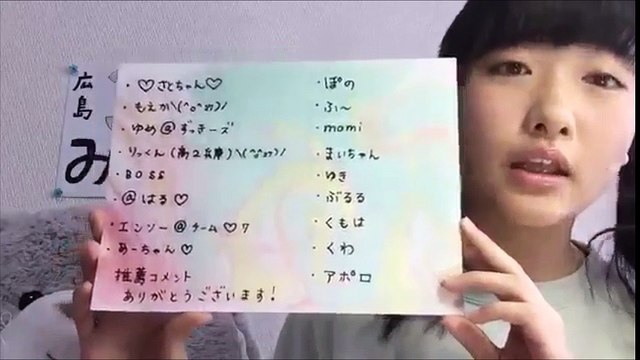 広島
み
・♡さとちゃん♡
・もえか\(^o^)/
・ゆめ@ずっきーズ
・りっくん(高2兵庫)\(^o^)/
・BOSS
・@はる♡
・エンソー@チーム♡7
・めーちゃん♡
推薦コメント
ありがとうございます!
・ぽの
・ふ〜
・momi
・まいちゃん
・ゆき
・ぶるる
・くもは
・くわ
・アポロ